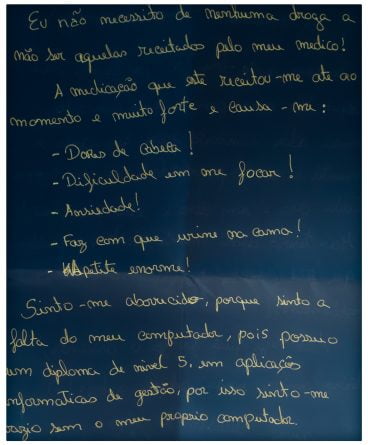 Eu não necessito de nenhuma droga a
não ser aquelas receitados pelo meu medico!
A medicação que este receitou-me ate ao
momento e muito forte e causa-me:
- Dores de cabeça!
- Dificuldade em me focar!
- Ansiedade!
- Faz com que urine na cama!
- Apetite enorme!
Sinto-me aborrecido, porque sinto a
falta do meu computador, pois possuo
um diploma de nivel 5, em aplicações
informaticas de gestão, por isso sinto-me
vazio sem o meu proprio computador.